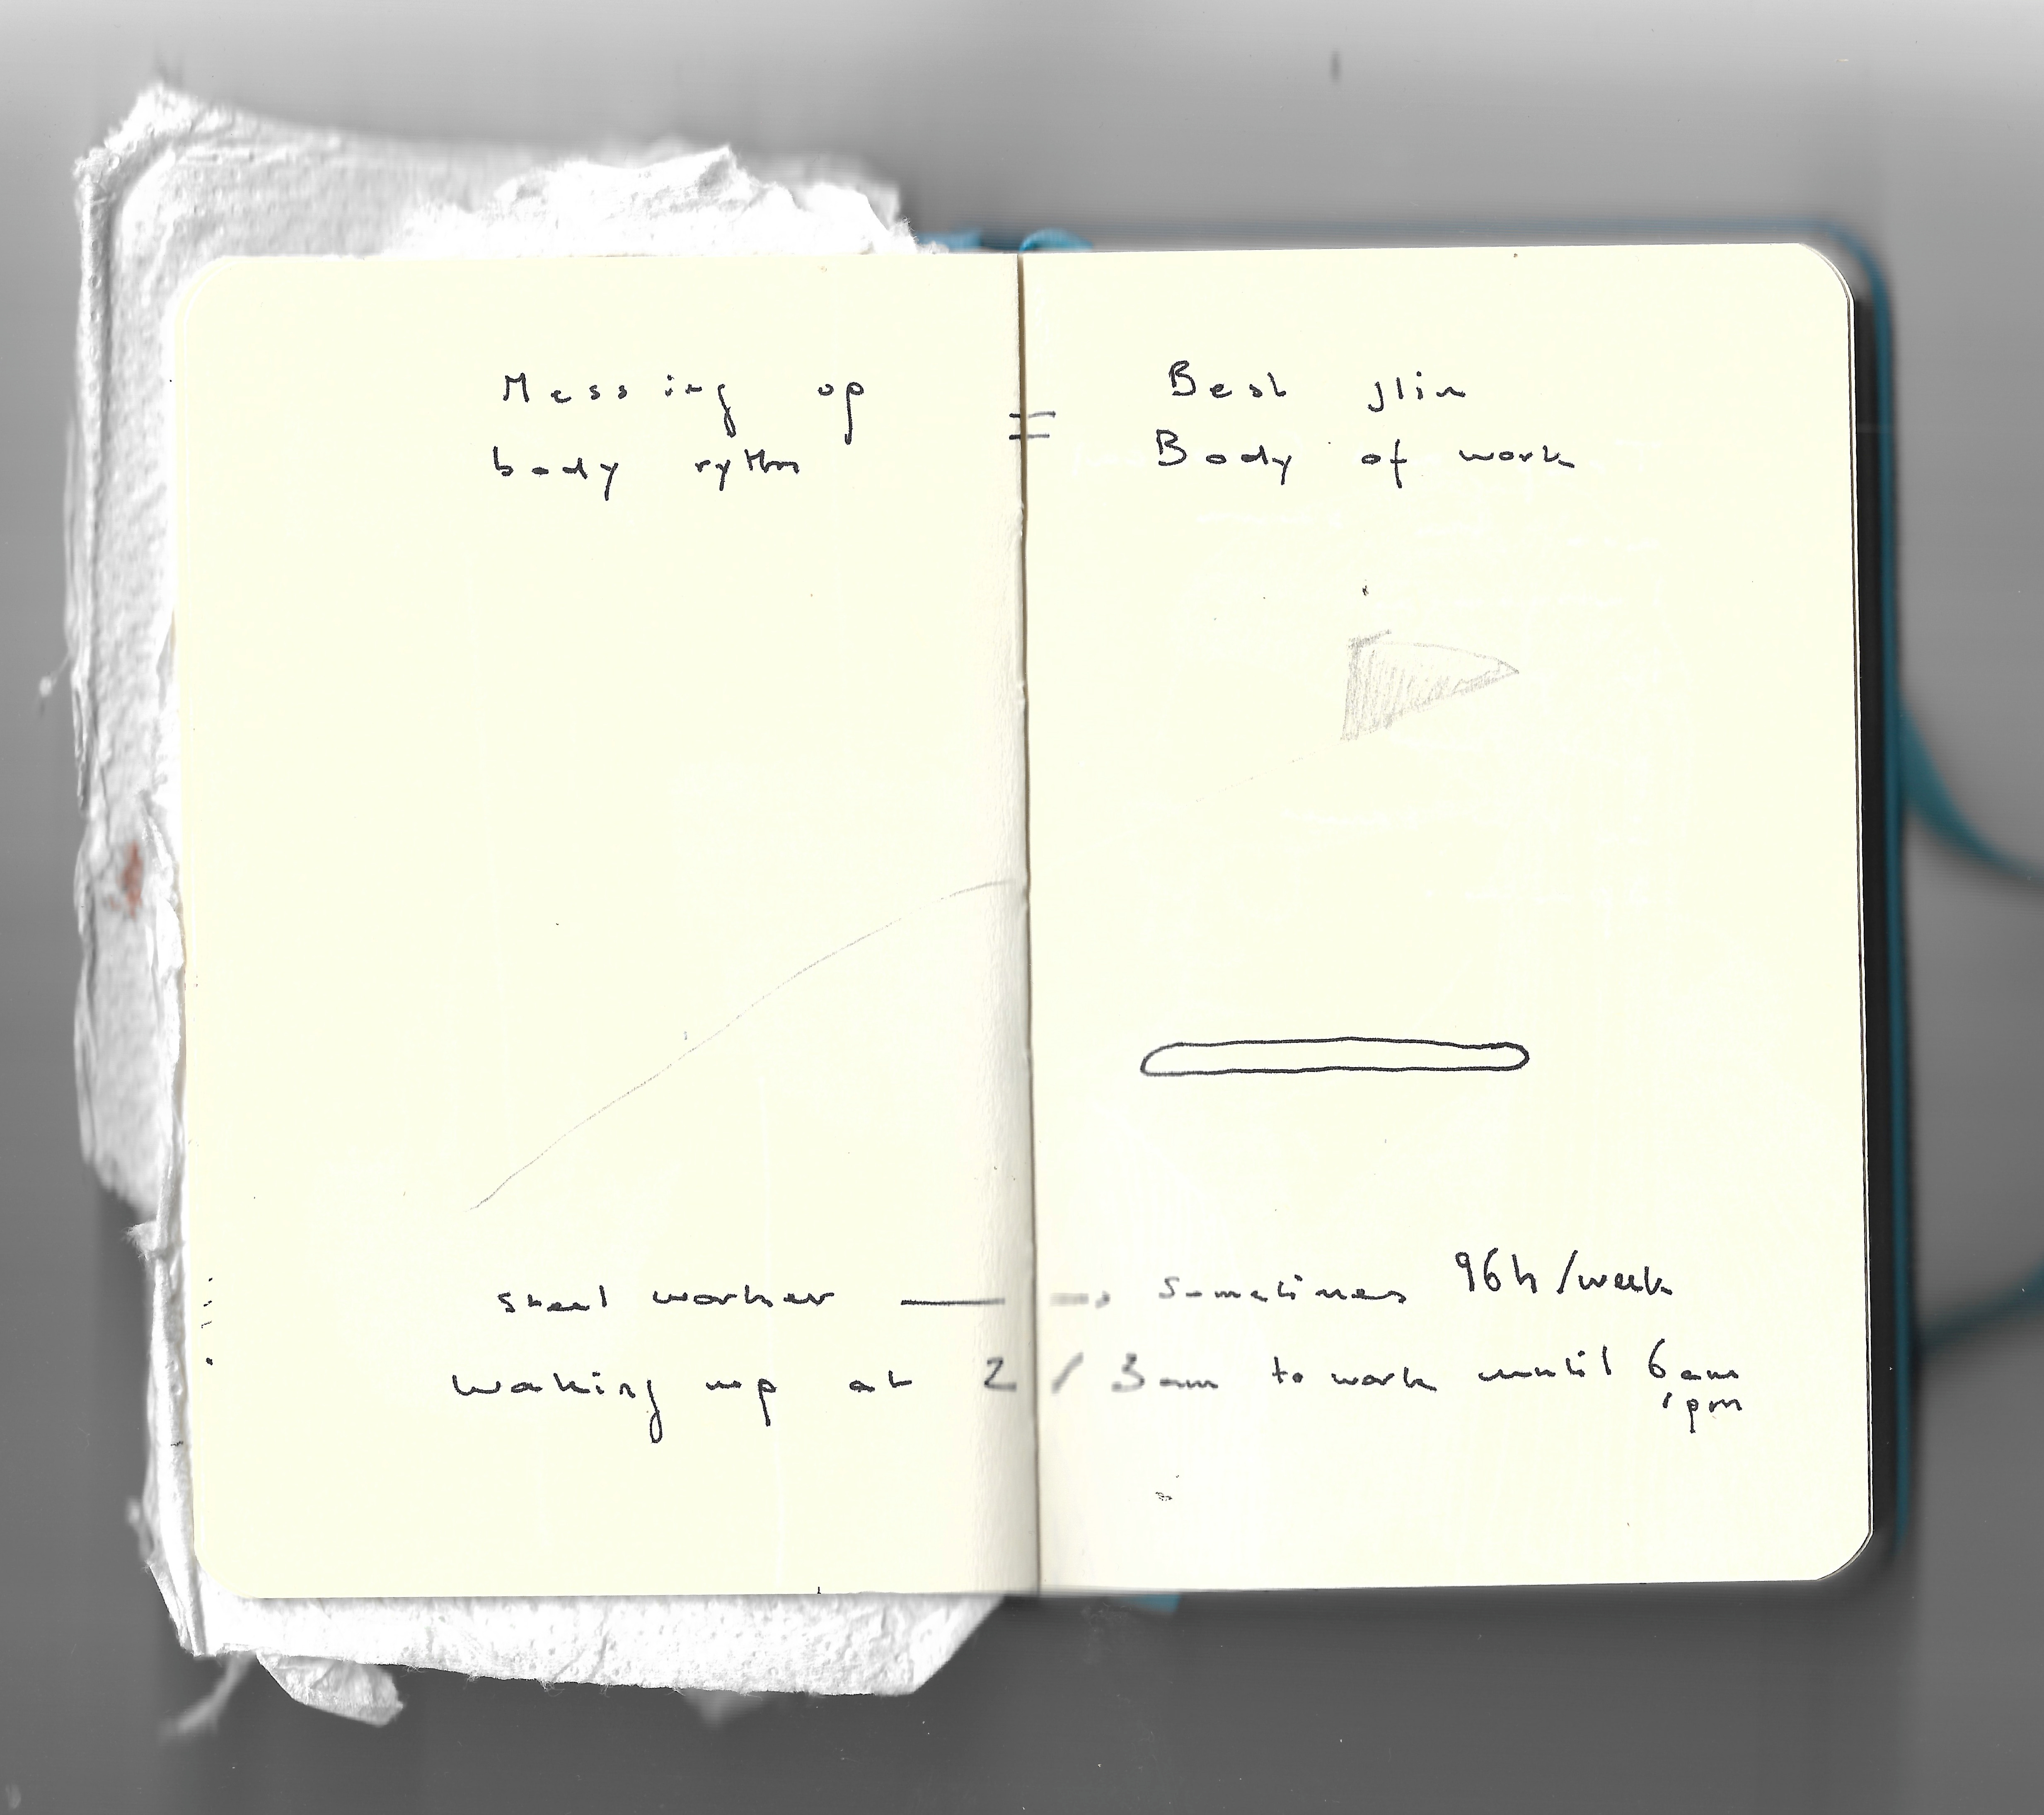 Messing up
body rythm
=
Best
Body of work
steel worker → sometimes 96h/week
waking up at 2/3am to work until 6am
/pm